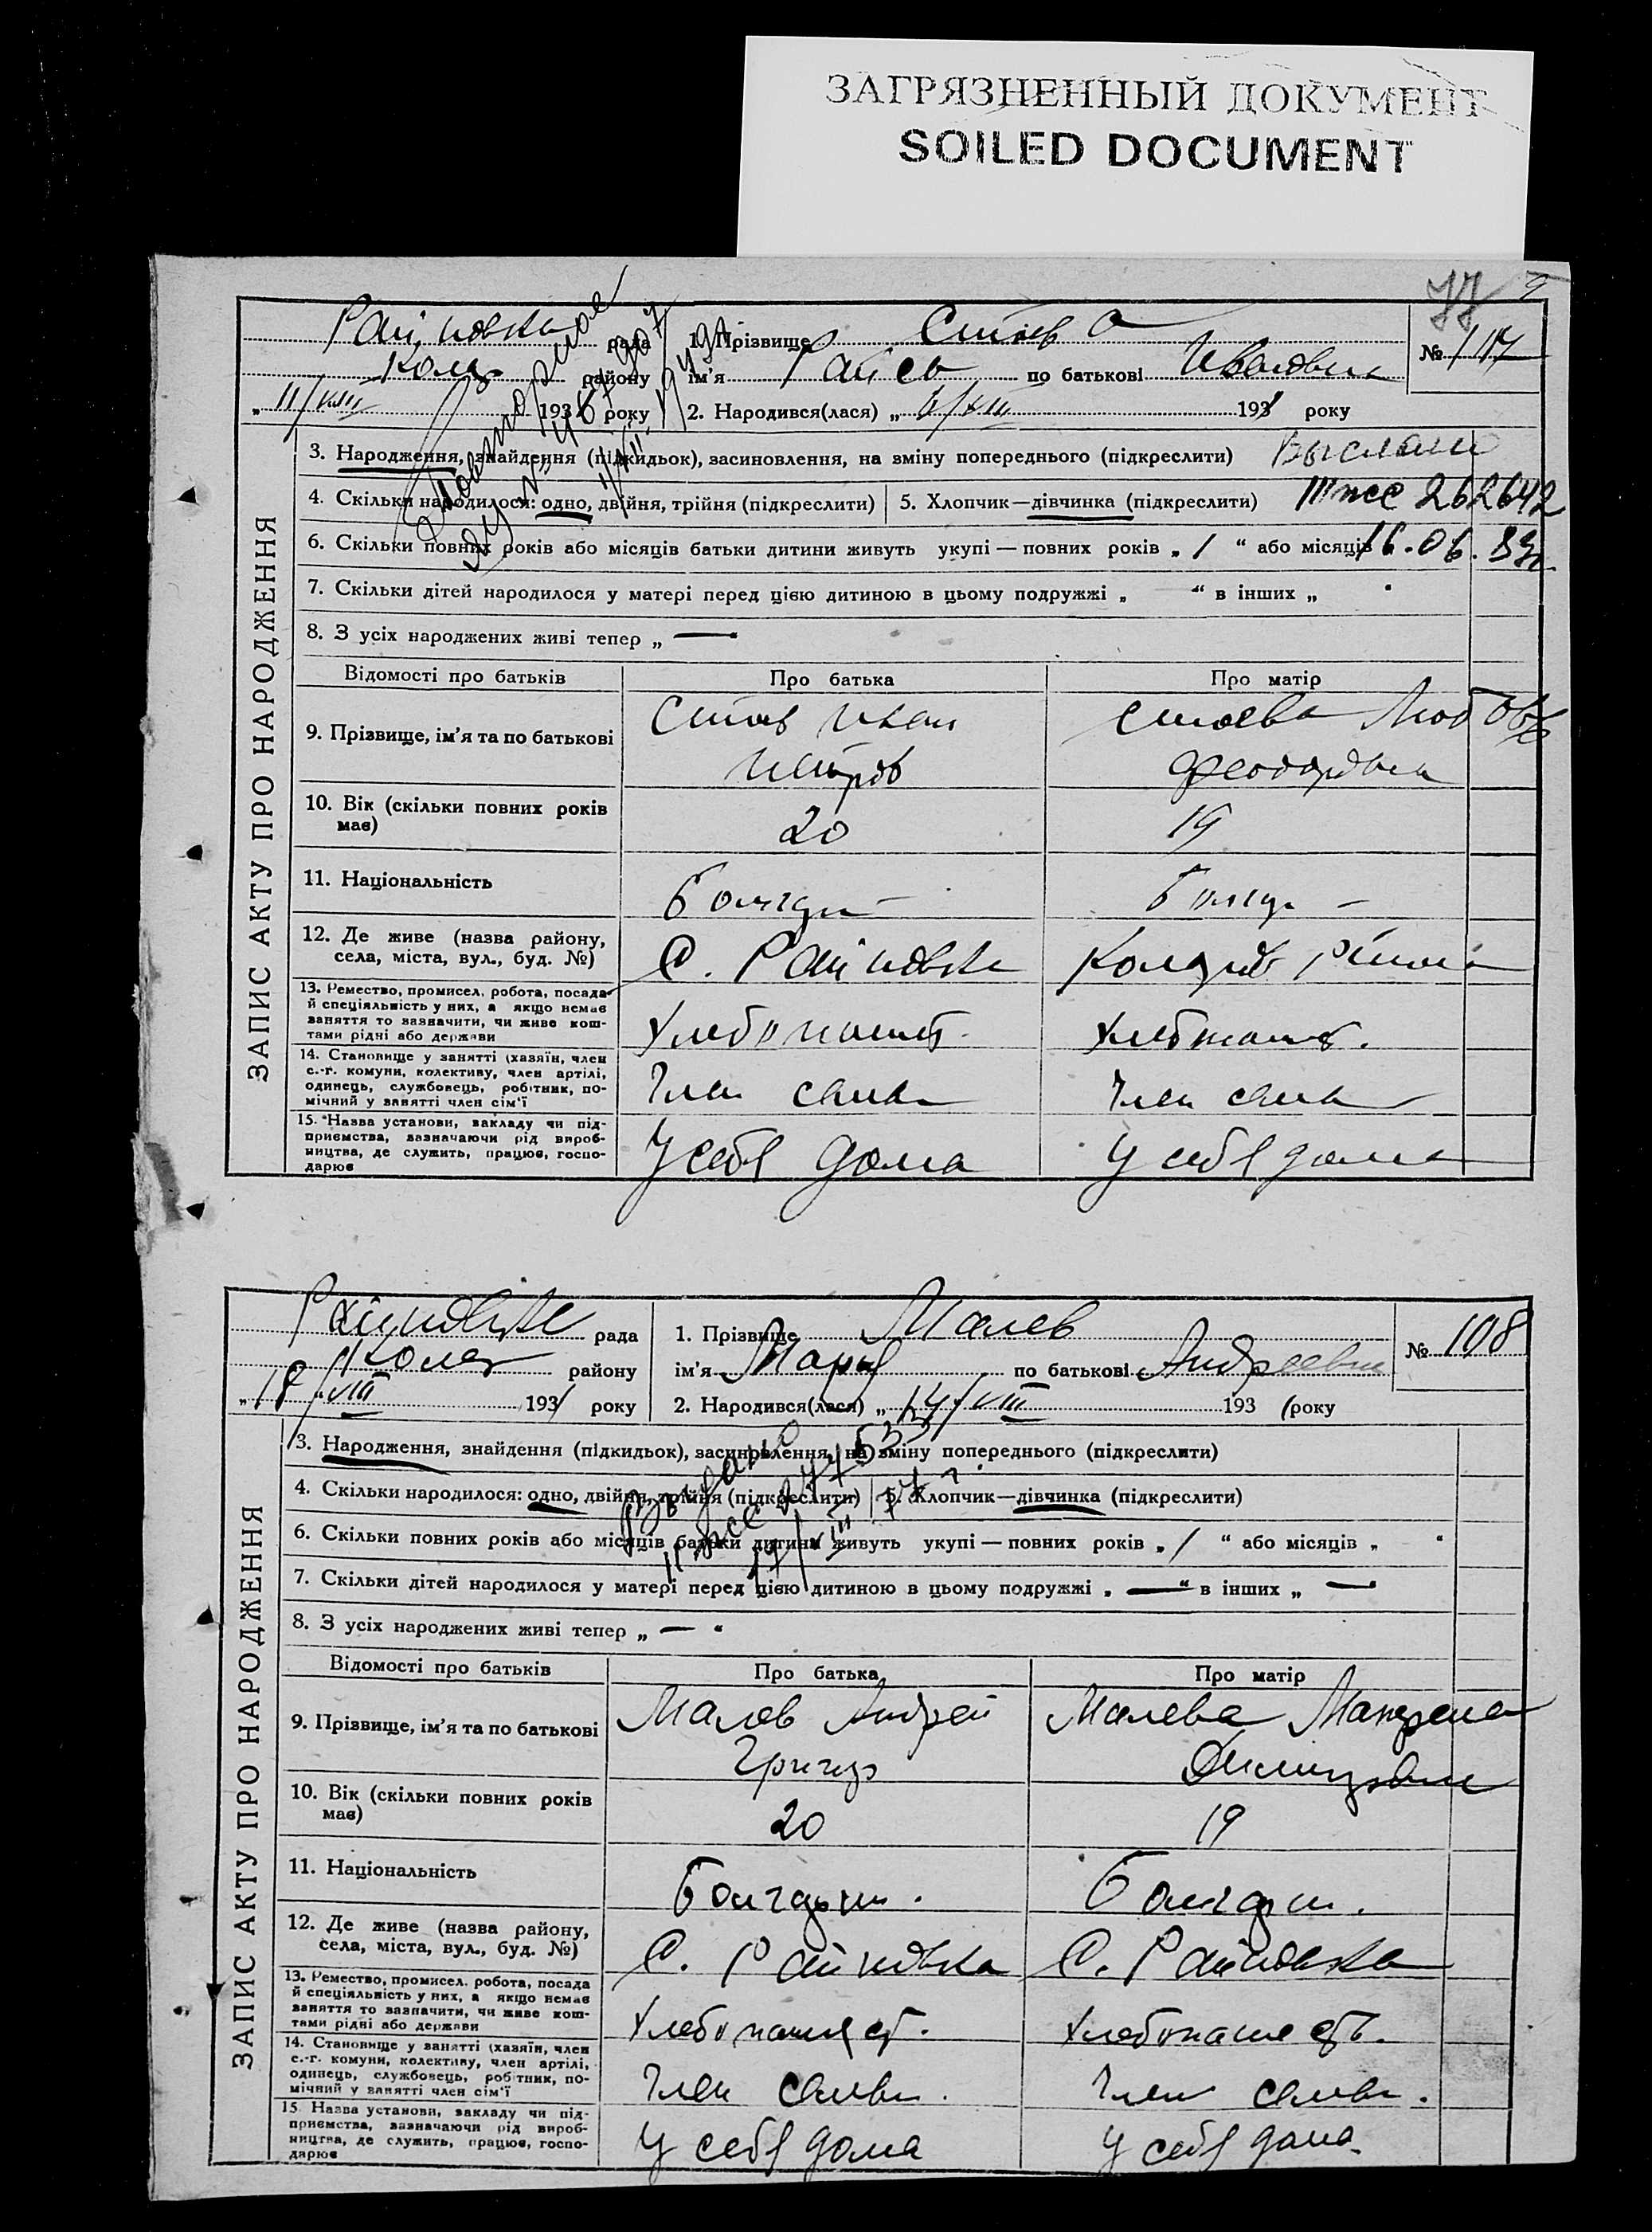 ЗАГРЯЗНЕННЫЙ ДОКУМЕНТ
SOILED DOCUMENT
ЗАПИС АКТУ ПРО НАРОДЖЕННЯ
рада
Кола району
11/VIII 193 року
1. Прізвище Стоева
ім'я Раиса по батькові Ивановна
2. Народився(лася) „ /VIII 1931 року
№
3. Народження, знайдення (підкидьок), засиновлення, на зміну попереднього (підкреслити) Выслано
4. Скільки народилося: одно, двійня, трійня (підкреслити) 5. Хлопчик—дівчинка (підкреслити) III жс 262642
6. Скільки повних років або місяців батьки дитини живуть укупі — повних років „ 1 “ або місяців 16.06.83г.
7. Скільки дітей народилося у матері перед цією дитиною в цьому подружжі „ “ в інших „ “
8. З усіх народжених живі тепер „ — “
Повторное
Відомості про батьків Про батька Про матір
9. Прізвище, ім'я та по батькові Стоев Иван Стоева Любовь
Петров Феодоровна
10. Вік (скільки повних років має) 20 19
11. Національність Болгари Болгар
12. Де живе (назва району, села, міста, вул., буд. №) С. Райновка
13. Ремество, промисел, робота, посада й спеціяльність у них, а якщо немає заняття то зазначити, чи живе коштами рідні або держави Хлебопашет. Хлебопашет.
14. Становище у занятті (хазяїн, член с.-г. комуни, колективу, член артілі, одинець, службовець, робітник, помічний у занятті член сім'ї Член семьи Член семьи
15. Назва установи, закладу чи підприємства, зазначаючи рід виробництва, де служить, працює, господарює У себя дома У себя дома
ЗАПИС АКТУ ПРО НАРОДЖЕННЯ
рада
Кола району
18/VIII 1931 року
1. Прізвище Малев
ім'я Мария по батькові Андреевна
2. Народився(лася) „ 14/VIII 1931 року
№ 108
3. Народження, знайдення (підкидьок), засиновлення, на зміну попереднього (підкреслити)
4. Скільки народилося: одно, двійня, трійня (підкреслити) 5. Хлопчик—дівчинка (підкреслити)
6. Скільки повних років або місяців батьки дитини живуть укупі — повних років „ 1 “ або місяців „ “
7. Скільки дітей народилося у матері перед цією дитиною в цьому подружжі „ — “ в інших „ — “
8. З усіх народжених живі тепер „ — “
Выдано
Відомості про батьків Про батька Про матір
9. Прізвище, ім'я та по батькові Малев Андрей Малева
10. Вік (скільки повних років має) 20 19
11. Національність Болгарин. Болгарин.
12. Де живе (назва району, села, міста, вул., буд. №) С. Райновка С. Райновка
13. Ремество, промисел, робота, посада й спеціяльність у них, а якщо немає заняття то зазначити, чи живе коштами рідні або держави Хлебопашест. Хлебопашеств.
14. Становище у занятті (хазяїн, член с.-г. комуни, колективу, член артілі, одинець, службовець, робітник, помічний у занятті член сім'ї Член семьи. Член семьи.
15. Назва установи, закладу чи підприємства, зазначаючи рід виробництва, де служить, працює, господарює У себя дома У себя дома.